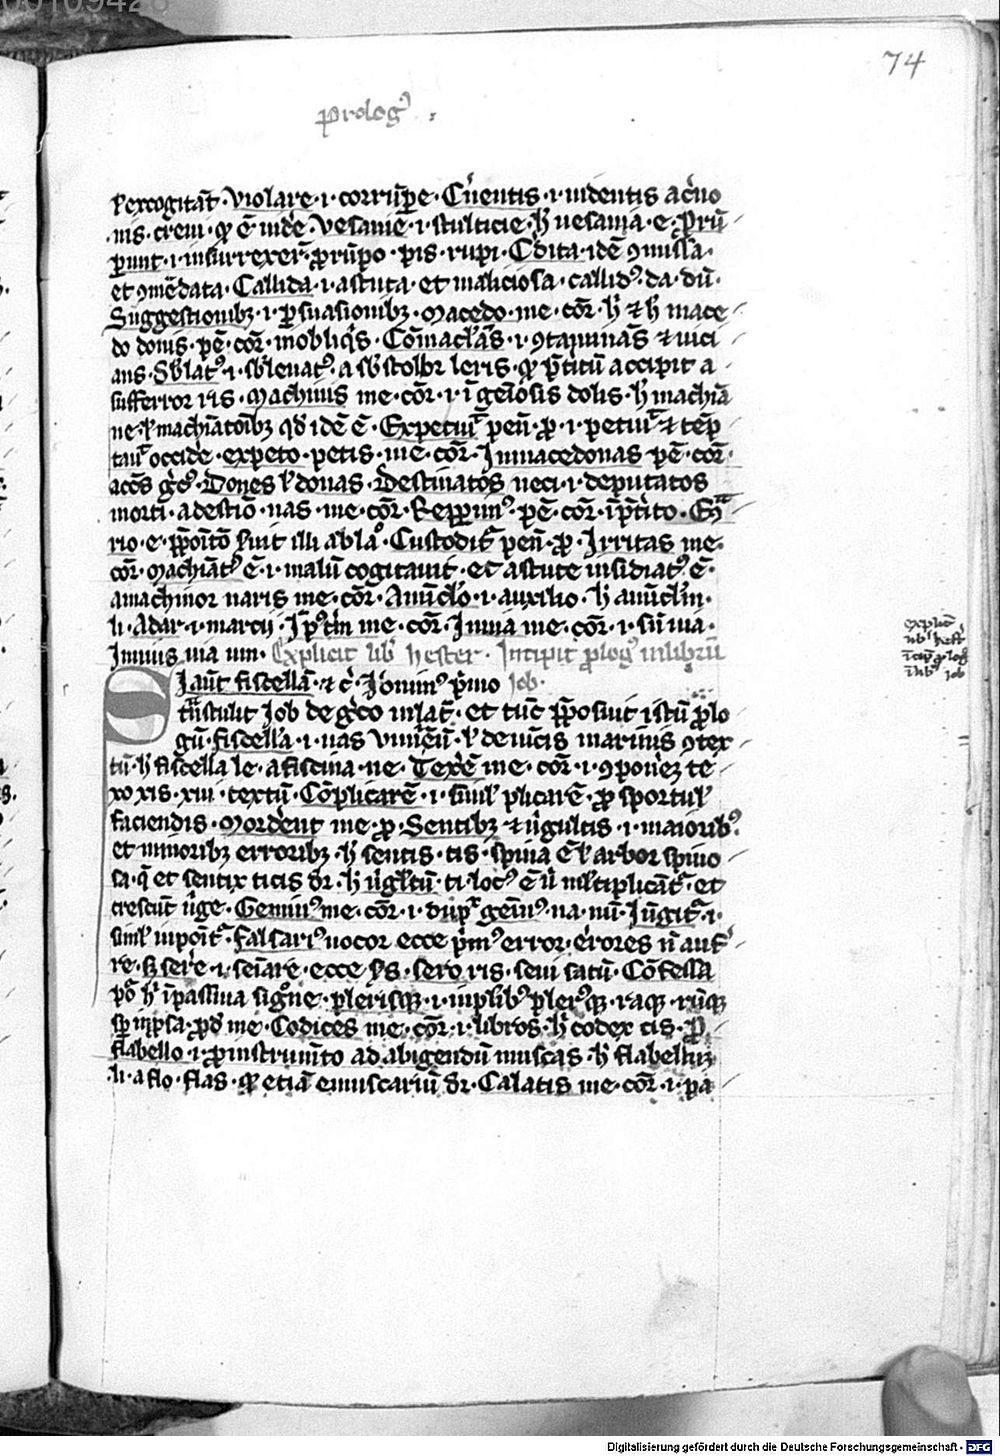 00109428
74
prologꝰ :
ł excogitāt · Violare · i · corrūpe · Cᵉnentis · i · uidentis a cᵉno
nis · creui · ꝙ ē uidēr · Vesanie · i · stulticie · ħ uesania · e · Prū
punt · i · insurrexer̄ · prūpo · pis · rupi · Cōdita · idē ꝯmissa ·
et ꝯmēdata · Callida · i · astuta · et maliciosa · callidꝰ · da · dū ·
Suggestionibꝫ · i · ꝑsuasionibꝫ · Macedo · me · cor̄ · ħ & ħ mace
do donis · pē · cor̄ · in obliqͥs · Cōmaclās · i · ꝯtaminās & uici
ans · Sblatꝰ · i · sbleuatꝰ · a sbstollor leris · ꝙ p̄titū accipit a
sufferror ris · Machinis me · cor̄ · i · īgeniosis dolis · ħ machīa
ne · ł machiatōibꝫ qđ idē ē · Expetiuᷓt peñ · ꝓ · i · petiuᷓt & tēp
tauᷓt occidᵉe · expeto · petis · me · cor̄ · In macedonas · pē · cor̄ ·
accs gᵉcꝰ · Dones ł donas · Destinatos neci · i · deputatos
morti · a destīo · nas · me · cor̄ · Repimꝰ · pē · cor̄ · ī p̄tīto ·
rio · e · p̄poito sint illi abla · Custodit peñ · ꝓ · Irritas me ·
cor̄ · Machiatꝰ ē · i · malū cogitauit · et astute insidiatꝰ ē ·
a machinor naris me · cor̄ · Amīclo · i · auxilio · ħ amīclm ·
li · Adar · i · marcij · me · cor̄ · Innia me · cor̄ · i · sīn uia ·
Innius uia um · Explicit lib hester · Incipit ꝓlogꝰ in librū
Si aūt fiscellā · & cᵉ · Ieronimꝰ pͥmo Job ·
trāstulit Job de gᵉco in lat̄ · et tūc p̄posuit istū ꝓlo
gū · fiscella · i · uas viminēū · ł de iūcis marinis ꝯtex
tū · ħ fiscella le · a fiscina · ne · Texēre me · cor̄ · i · ꝯponēꝫ te
xo xis · xui · textū · Cōplicarē · i · simł plicarē · ꝓ sportuł
faciendis · Mordent me · ꝓ · Sentibꝫ & uᷓgultis · i · maioribꝰ ·
et minoribꝫ erroribꝫ · ħ sentis · tis · spina ē ł arbor spino
sa · q̄ et sentix ticis dr̄ · ħ uᷓgltū · ti · locꝰ ē ū mltiplicant̄ · et
crescūt uᷓge · Geminꝰ me · cor̄ · i · dupᵡ gemīꝰ · na · nū · Iūgitᷓ · i ·
simł inponitᷓ · Falsariꝰ uocor ecce pͥmꝰ error · errores n̄ aufᵉ
re · sꝫ serᵉe · i · seīare · ecce · sero ris · seui satū · Cōfessa
ħ īpassiua sigōne · plerisqꝫ · i · in plibꝰ plerꝰqꝫ · raqꝫ · rūqꝫ
· ꝓđ me · Codices me · cor̄ · i · libros · ħ codex cis · ꝓ
flabello · i · ꝓ instrumīto ad abigendū muscas · ħ flabellum
li · a flo · flas · ꝙ etiā emuscariū dr̄ · Calatis me · cor̄ · i · pa
explic̄
lib hesť
īcip ꝓlog
ī lib Job
Digitalisierung gefördert durch die Deutsche Forschungsgemeinschaft - DFG